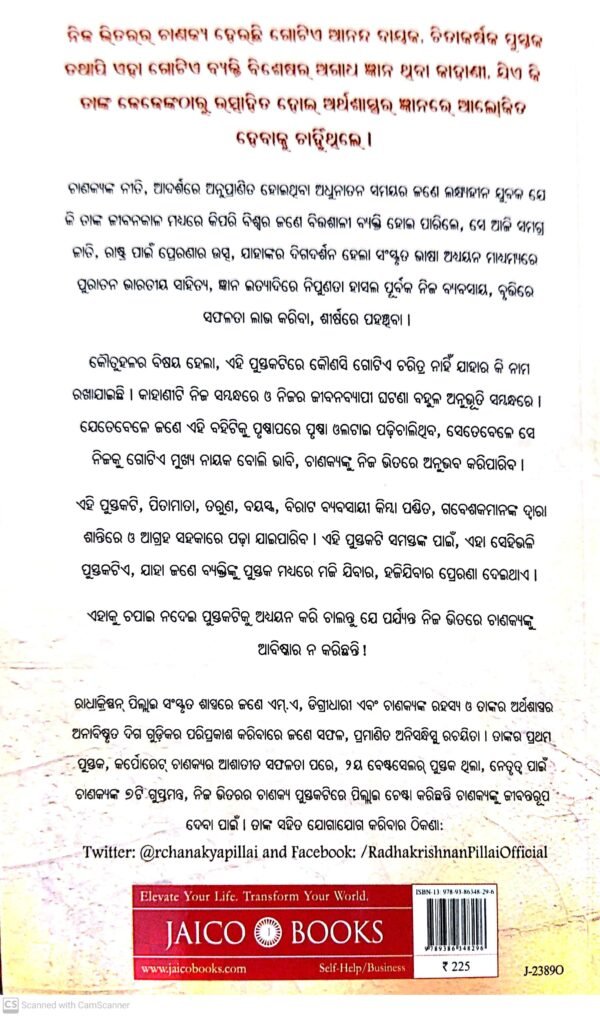 ନିଜ ଭିତରର ଚାଣକ୍ୟ ହେଉଛି ଗୋଟିଏ ଆନନ୍ଦ ଦାୟକ, ଚିତ୍ତାକର୍ଷକ ପୁସ୍ତକ
ତଥାପି ଏହା ଗୋଟିଏ ବ୍ୟକ୍ତି ବିଶେଷର ଅଗାଧ ଜ୍ଞାନ ଥିବା କାହାଣୀ, ଯିଏ କି
ତାଙ୍କ ଜେଜେଙ୍କଠାରୁ ଉତ୍ସାହିତ ହୋଇ ଅର୍ଥଶାସ୍ତ୍ରର ଜ୍ଞାନରେ ଆଲୋକିତ
ହେବାକୁ ଚାହୁଁଥିଲେ ।
ଚାଣକ୍ୟଙ୍କ ନୀତି, ଆଦର୍ଶରେ ଅନୁପ୍ରାଣିତ ହୋଇଥିବା ଅଧୁନାତନ ସମୟର ଜଣେ ଲକ୍ଷ୍ୟହୀନ ଯୁବକ ଯେ
କି ତାଙ୍କ ଜୀବନକାଳ ମଧ୍ୟରେ କିପରି ବିଶ୍ୱର ଜଣେ ବିତ୍ତଶାଳୀ ବ୍ୟକ୍ତି ହୋଇ ପାରିଲେ, ସେ ଆଜି ସମଗ୍ର
ଜାତି, ରାଷ୍ଟ୍ର ପାଇଁ ପ୍ରେରଣାର ଉତ୍ସ, ଯାହାଙ୍କର ଦିଗଦର୍ଶନ ହେଲା ସଂସ୍କୃତ ଭାଷା ଅଧ୍ୟୟନ ମାଧ୍ୟମରେ
ପୁରାତନ ଭାରତୀୟ ସାହିତ୍ୟ, ଜ୍ଞାନ ଇତ୍ୟାଦିରେ ନିପୁଣତା ହାସଲ ପୂର୍ବକ ନିଜ ବ୍ୟବସାୟ, ବୃତ୍ତିରେ
ସଫଳତା ଲାଭ କରିବା, ଶୀର୍ଷରେ ପହଞ୍ଚିବା ।
କୌତୁହଳର ବିଷୟ ହେଲା, ଏହି ପୁସ୍ତକଟିରେ କୌଣସି ଗୋଟିଏ ଚରିତ୍ର ନାହିଁ ଯାହାର କି ନାମ
ରଖାଯାଇଛି । କାହାଣୀଟି ନିଜ ସମ୍ବନ୍ଧରେ ଓ ନିଜର ଜୀବନବ୍ୟାପୀ ଘଟଣା ବହୁଳ ଅନୁଭୂତି ସମ୍ବନ୍ଧରେ ।
ଯେତେବେଳେ ଜଣେ ଏହି ବହିଟିକୁ ପୃଷ୍ଠାପରେ ପୃଷ୍ଠା ଓଲଟାଇ ପଢ଼ିଚାଲିଥିବ, ସେତେବେଳେ ସେ
ନିଜକୁ ଗୋଟିଏ ମୁଖ୍ୟ ନାୟକ ବୋଲି ଭାବି, ଚାଣକ୍ୟଙ୍କୁ ନିଜ ଭିତରେ ଅନୁଭବ କରିପାରିବ ।
ଏହି ପୁସ୍ତକଟି, ପିତାମାତା, ତରୁଣ, ବୟସ୍କ, ବିରାଟ ବ୍ୟବସାୟୀ କିମ୍ବା ପଣ୍ଡିତ, ଗବେଷକମାନଙ୍କ ଦ୍ୱାରା
ଶାନ୍ତିରେ ଓ ଆଗ୍ରହ ସହକାରେ ପଢ଼ା ଯାଇପାରିବ । ଏହି ପୁସ୍ତକଟି ସମସ୍ତଙ୍କ ପାଇଁ, ଏହା ସେହିଭଳି
ପୁସ୍ତକଟିଏ, ଯାହା ଜଣେ ବ୍ୟକ୍ତିଙ୍କୁ ପୁସ୍ତକ ମଧ୍ୟରେ ମଜି ଯିବାର, ହଜିଯିବାର ପ୍ରେରଣା ଦେଇଥାଏ ।
ଏହାକୁ ଚପାଇ ନଦେଇ ପୁସ୍ତକଟିକୁ ଅଧ୍ୟୟନ କରି ଚାଲନ୍ତୁ ଯେ ପର୍ଯ୍ୟନ୍ତ ନିଜ ଭିତରେ ଚାଣକ୍ୟଙ୍କୁ
ଆବିଷ୍କାର ନ କରିଛନ୍ତି !
ରାଧାକ୍ରିଷନ୍ ପିଲ୍ଲାଇ ସଂସ୍କୃତ ଶାସ୍ତ୍ରରେ ଜଣେ ଏମ୍.ଏ, ଡିଗ୍ରୀଧାରୀ ଏବଂ ଚାଣକ୍ୟଙ୍କ ରହସ୍ୟ ଓ ତାଙ୍କର ଅର୍ଥଶାସ୍ତ୍ରର
ଅନାବିଷ୍କୃତ ଦିଗ ଗୁଡ଼ିକର ପରିପ୍ରକାଶ କରିବାରେ ଜଣେ ସଫଳ, ପ୍ରମାଣିତ ଅନିସନ୍ଧିତ୍ସୁ ରଚୟିତା । ତାଙ୍କର ପ୍ରଥମ
ପୁସ୍ତକ, କର୍ପୋରେଟ୍ ଚାଣକ୍ୟର ଆଶାତୀତ ସଫଳତା ପରେ, ୨ୟ ବେଷ୍ଟସେଲର୍ ପୁସ୍ତକ ଥିଲା, ନେତୃତ୍ୱ ପାଇଁ
ଚାଣକ୍ୟଙ୍କ ୭ଟି ଗୁପ୍ତମନ୍ତ୍ର, ନିଜ ଭିତରର ଚାଣକ୍ୟ ପୁସ୍ତକଟିରେ ପିଲ୍ଲାଇ ଚେଷ୍ଟା କରିଛନ୍ତି ଚାଣକ୍ୟଙ୍କୁ ଜୀବନ୍ତରୂପ
ଦେବା ପାଇଁ । ତାଙ୍କ ସହିତ ଯୋଗାଯୋଗ କରିବାର ଠିକଣା:
Twitter: @rchanakyapillai and Facebook: /RadhakrishnanPillaiOfficial
Elevate Your Life. Transform Your World.
JAICO BOOKS
www.jaicobooks.com Self-Help/Business
ISBN-13 978-93-86348-29-6
9789386348296
₹ 225
J-2389O
CS Scanned with CamScanner